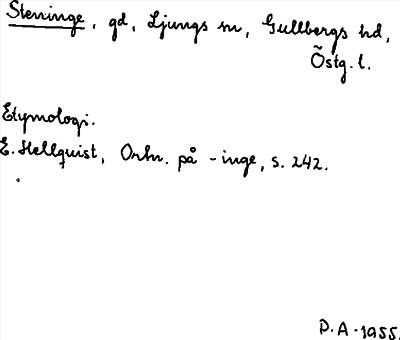 Steninge, gd, Ljungs sn, Gullbergs hd,
Östg. l.
Etymologi.
E. Hellquist, Ortn. på -inge, s. 242.
P.A. 1955.